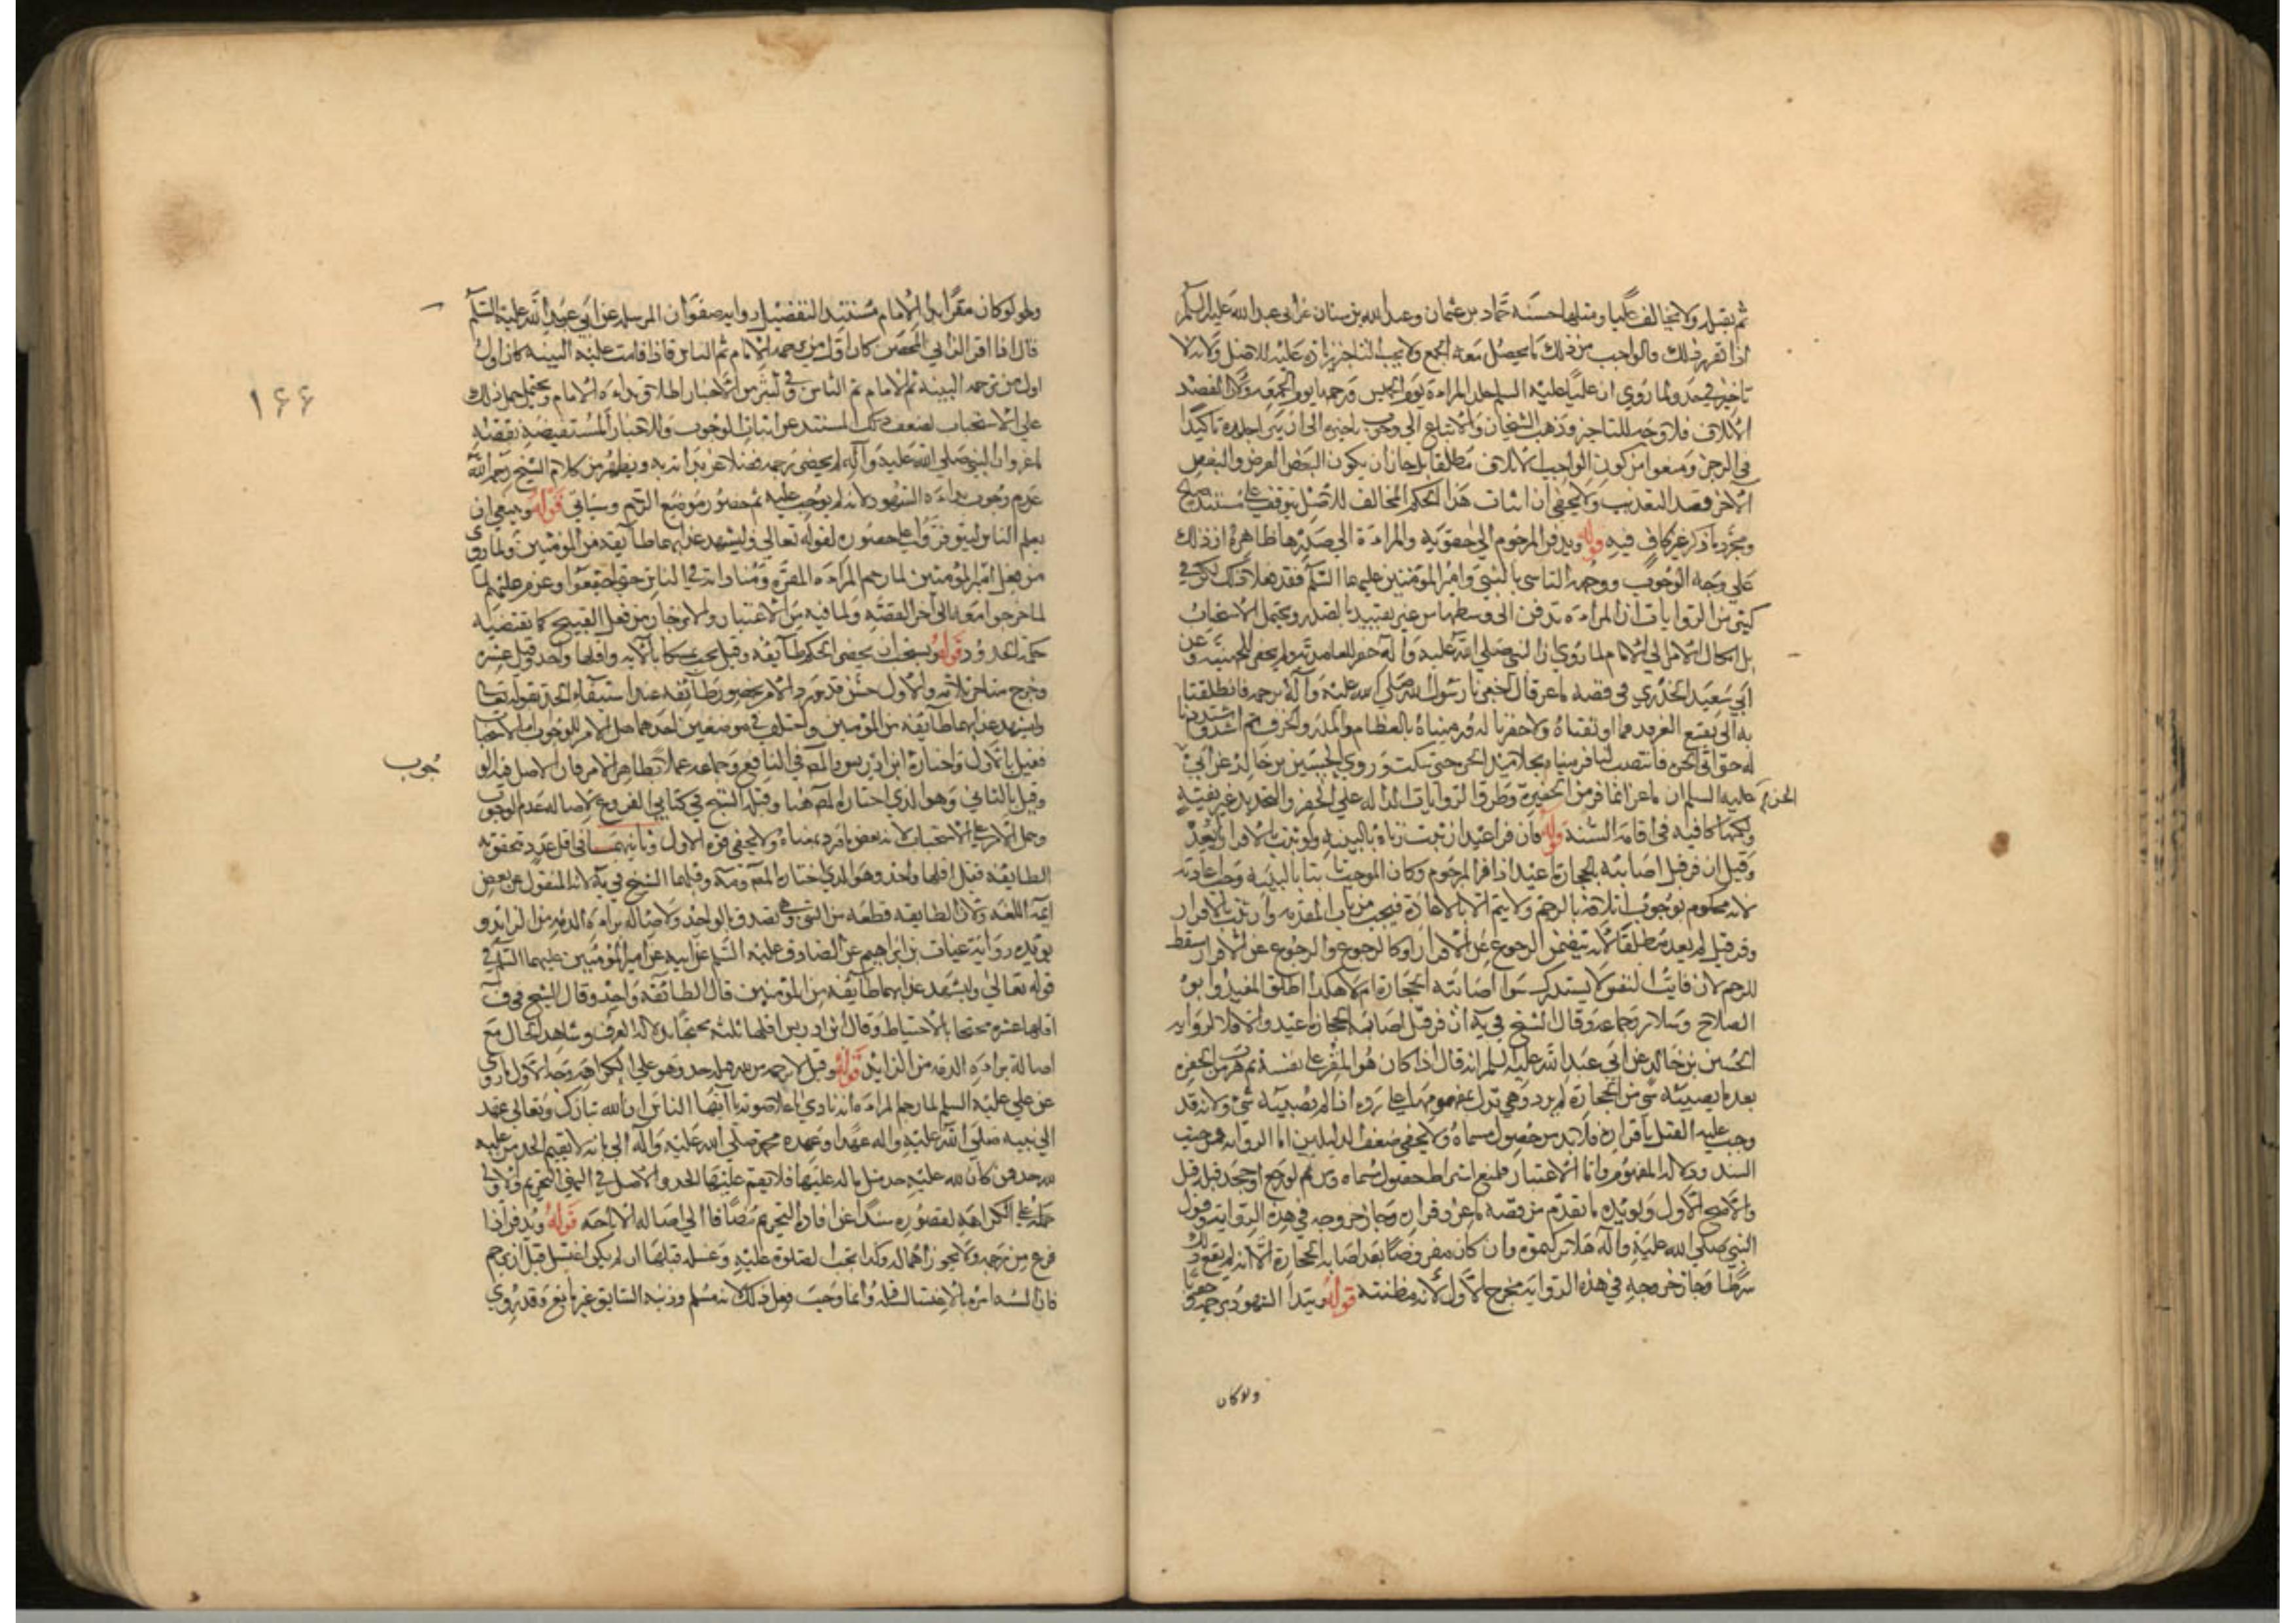 ثم يقتله ولا يخالف عليا ومثلها حسنة حماد بن عثمان وعبد الله بن سنان عن ابي عبد الله عليه السلم
اذا تقرر ذلك فالواجب من ذلك ما يحصل معه الجمع ولا يجب التاخير زيادة عليه للاصل ولانه لا
تاخير في حد ولما روي ان عليا عليه السلم جلد المراة يوم الخميس ورجمها يوم الجمعة ولان القصد
الاتلاف فلا وجه للتاخير وذهب الشيخان والاتباع الى وجوب تاخيره الى ان يبرا جلده تاكيدا
في الزجر ومنعوا من كون الواجب الاتلاف مطلقا بل جاز ان يكون البعض الغرض والبعض
الآخر قصد التعذيب ولا يخفى ان اثبات هذا الحكم المخالف للاصل يتوقف على مستند صالح
ومجرد ما ذكر غير كاف فيه قوله ويدفن المرجوم الى حقويه والمراة الى صدرها ظاهره ان ذلك
على وجه الوجوب ووجهه التاسي بالنبي وامير المؤمنين عليهما السلم فقد فعلا ذلك لكن في
كثير من الروايات ان المراة تدفن الى وسطها من غير تقييد بالصدر ويحتمل الاستحباب
بل ايكال الامر الى الامام لما روي ان النبي صلى الله عليه وآله حفر للعامدية ولم يحفر للجهنية وعن
ابي سعيد الخدري في قصة ماعز قال امرنا رسول الله صلى الله عليه وآله برجمه فانطلقنا
به الى بقيع الغرقد فما اوثقناه ولا حفرنا له ورميناه بالعظام والمدر والخزف ثم اشتد واشتددنا
له حتى اتى الحرة فانتصب لنا فرميناه بجلاميد الحرة حتى سكت وروى الحسين بن خالد عن ابي
الحسن عليه السلم ان ماعزا انما فر من الحفيرة وطرق الروايات الدالة على الحفر والتحديد غير نقية
ولكنها كافية في اقامة السنة قوله فان فر اعيد ان ثبت زناه بالبينة ولو ثبت بالاقرار لم يعد
وقيل ان فر قبل اصابته بالحجارة اعيد اذا فر المرجوم وكان الموجب ثابتا بالبينة وجب اعادته
لانه محكوم بوجوب اتلافه بالرجم ولا يتم الا بالاعادة فيجب من باب المقدمة وان ثبت بالاقرار
وفر قيل لم يعد مطلقا لانه يتضمن الرجوع عن الاقرار او كالرجوع والرجوع عن الاقرار مسقط
للرجم لان فايت النفس لا يستدرك سوا اصابته الحجارة ام لا هكذا اطلق المفيد وابو
الصلاح وسلار وجماعة وقال الشيخ في ية ان فر قبل اصابة الحجارة اعيد والا فلا لرواية
الحسين بن خالد عن ابي عبد الله عليه السلم انه قال اذا كان هو المقر على نفسه ثم هرب من الحفرة
بعد ما يصيبه شي من الحجارة لم يرد وهي تدل بمفهومها على رده اذا لم يصيبه شي ولانه قد
وجب عليه القتل باقراره فلا بد من حصول مسماه ولا يخفى ضعف الدليلين اما الرواية فمن حيث
السند ودلالة المفهوم واما الاعتبار فلمنع اشتراط حصول مسماه ومن ثم لو رجع او جحد قبله قبل
والاصح الاول ويؤيده ما تقدم من قصة ماعز وفراره وجاز خروجه في هذه الرواية وقول
النبي صلى الله عليه وآله هلا تركتموه وان كان مفروضا بعد اصابة الحجارة الا انه لم يقع ذلك
شرطا وجاز خروجه في هذه الرواية مخرج الاول لانه مظنته قوله ويبتدا الشهود برجمه وجوبا
ولو كان
ولو كان مقرا بدا الامام مستند التفصيل رواية صفوان المرسلة عن ابي عبد الله عليه السلم
قال اذا اقر الزاني المحصن كان اول من يرجمه الامام ثم الناس فاذا قامت عليه البينة كان اول
اول من يرجمه البينة ثم الامام ثم الناس وفي كثير من الاخبار اطلاق بداءة الامام ويحتمل حمل ذلك
١٦٦
على الاستحباب لضعف المستند عن اثبات الوجوب وللاخبار المستفيضة بقضية
ماعز وان النبي صلى الله عليه وآله لم يحضر رجمه فضلا عن بداته به ويظهر من كلام الشيخ رحمه الله
عدم وجوب بداءة الشهود لانه لم يوجب عليهم حضور موضع الرجم وسياتي قوله وينبغي ان
يعلم الناس ليتوفروا على حضوره لقوله تعالى وليشهد عذابهما طائفة من المؤمنين ولما روي
من فعل امير المؤمنين لما رجم المراة المقرة ومناداته في الناس حتى اجتمعوا وعزم عليهم لما
لما خرجوا معه الى آخر القصة ولما فيه من الاعتبار والانزجار من فعل القبيح كما تقتضيه
حكمة الحدود قوله ويستحب ان يحضر الحكم طائفة وقيل يجب تمسكا بالآية واقلها واحد وقيل عشرة
وخرج متاخر ثلاثة والاول حسن قد ورد الامر بحضور طائفة عند استيفاء الحد بقوله تعالى
وليشهد عذابهما طائفة من المؤمنين واختلف في موضعين احدهما هل الامر للوجوب ام الاستحباب
فقيل بالاول واختاره ابن ادريس والمص في النافع وجماعة عملا بظاهر الامر فان الاصل فيه الو
جوب
وقيل بالثاني وهو الذي اختاره المص هنا وقبله الشيخ في كتابي الفروع لاصالة عدم الوجوب
وحمل الامر على الاستحباب لانه بعض افراد معناه ولا يخفى قوة الاول وثانيهما في اقل عدد تتحقق به
الطائفة فقيل اقلها واحد وهو الذي اختاره المص وقبلهما الشيخ في ية لانه المنقول عن بعض
ايمة اللغة ولان الطائفة قطعة من الشي وهي تصدق بالواحد ولاصالة براءة الذمة من الزايد و
يؤيده رواية غياث بن ابراهيم عن الصادق عليه السلم عن ابيه عن امير المؤمنين عليهما السلم في
قوله تعالى وليشهد عذابهما طائفة من المؤمنين قال الطائفة واحد وقال الشيخ في ف
اقلها عشرة محتجا بالاحتياط وقال ابن ادريس اقلها ثلثة محتجا بدلالة العرف وشاهد الحال مع
اصالة براءة الذمة من الزايد قوله وقيل لا يرجمه من لله قبله حد وهو على الكراهة وجه الاول ما روي
عن علي عليه السلم لما رجم المراة انه نادى باعلا صوته يا ايها الناس ان الله تبارك وتعالى عهد
الى نبيه صلى الله عليه واله عهدا وعهده محمد صلى الله عليه وآله الي بانه لا يقيم الحد من عليه
لله حد فمن كان لله عليه حد مثل ما له عليها فلا يقيم عليها الحد والاصل في النهي التحريم والاولى
حمله على الكراهة لقصوره سندا عن افادة التحريم مضافا الى اصالة الاباحة قوله ويدفن اذا
فرغ من رجمه ولا يجوز اهماله وكذا تجب الصلوة عليه وغسله قبلها ان لم يكن اغتسل قبل ان يرجم
فان السنة امره بالاغتسال قبله وانما وجب فعل ذلك لانه مسلم وذنبه السابق غير مانع وقد روي